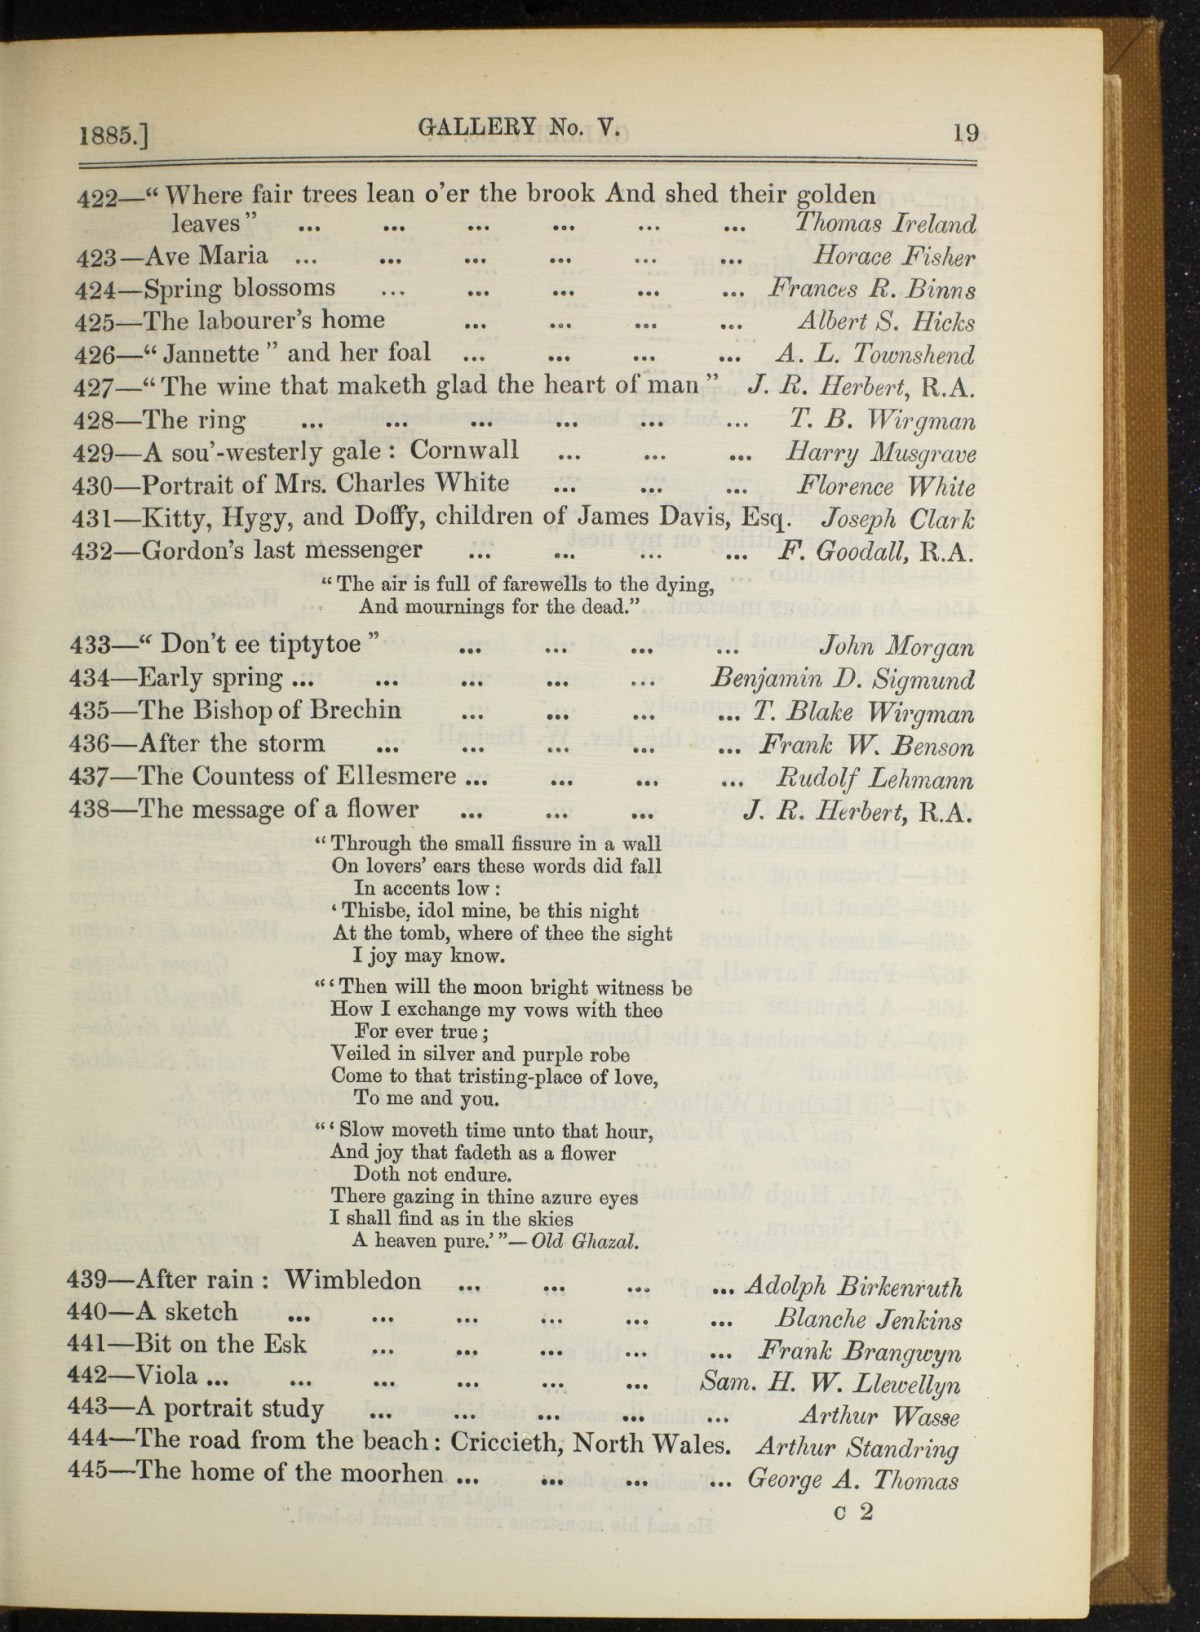 1885.] GALLERY No. V. 19
422—“ Where fair trees lean o’er the brook And shed their golden
leaves ” ... ... ... ... ... ... Thomas Ireland
423—Ave Maria ... ... ... ... ... ... Horace Fisher
424—Spring blossoms ... ... ... ... ... Frances R. Binns
425—The labourer’s home ... ... ... ... Albert S. Hicks
426—“ Jannette ” and her foal ... ... ... ... A. L. Townshend
427—“ The wine that maketh glad the heart of man ” J. R. Herbert, R.A.
428—The ring ... ... ... ... ... ... T. B. Wirgman
429—A sou’-westerly gale : Cornwall ... ... ... Harry Musgrave
430—Portrait of Mrs. Charles White ... ... ... Florence White
431—Kitty, Hygy, and Doffy, children of James Davis, Esq. Joseph Clark
432—Gordon’s last messenger ... ... ... ... F. Goodall, R.A.
“ The air is full of farewells to the dying,
And mournings for the dead.”
433—“ Don’t ee tiptytoe ” ... ... ... ... John Morgan
434—Early spring ... ... ... ... ... Benjamin D. Sigmund
435—The Bishop of Brechin ... ... ... ... T. Blake Wirgman
436—After the storm ... ... ... ... ... Frank W. Benson
437—The Countess of Ellesmere ... ... ... ... Rudolf Lehmann
438—The message of a flower ... ... ... J. R. Herbert, R.A.
“ Through the small fissure in a wall
On lovers’ ears these words did fall
In accents low :
‘ Thisbe, idol mine, be this night
At the tomb, where of thee the sight
I joy may know.
“ ‘ Then will the moon bright witness be
How I exchange my vows with thee
For ever true ;
Veiled in silver and purple robe
Come to that tristing-place of love,
To me and you.
“ ‘ Slow moveth time unto that hour,
And joy that fadeth as a flower
Doth not endure.
There gazing in thine azure eyes
I shall find as in the skies
A heaven pure.’ ”—Old Ghazal.
439—After rain : Wimbledon ... ... ... ... Adolph Birkenruth
440—A sketch ... ... ... ... ... ... Blanche Jenkins
441—Bit on the Esk ... ... ... ... ... Frank Brangwyn
442—Viola ... ... ... ... ... ... Sam. H. W. Llewellyn
443—A portrait study ... ... ... ... ... Arthur Wasse
444—The road from the beach : Criccieth, North Wales. Arthur Standring
445—The home of the moorhen ... ... ... ... George A. Thomas
C 2